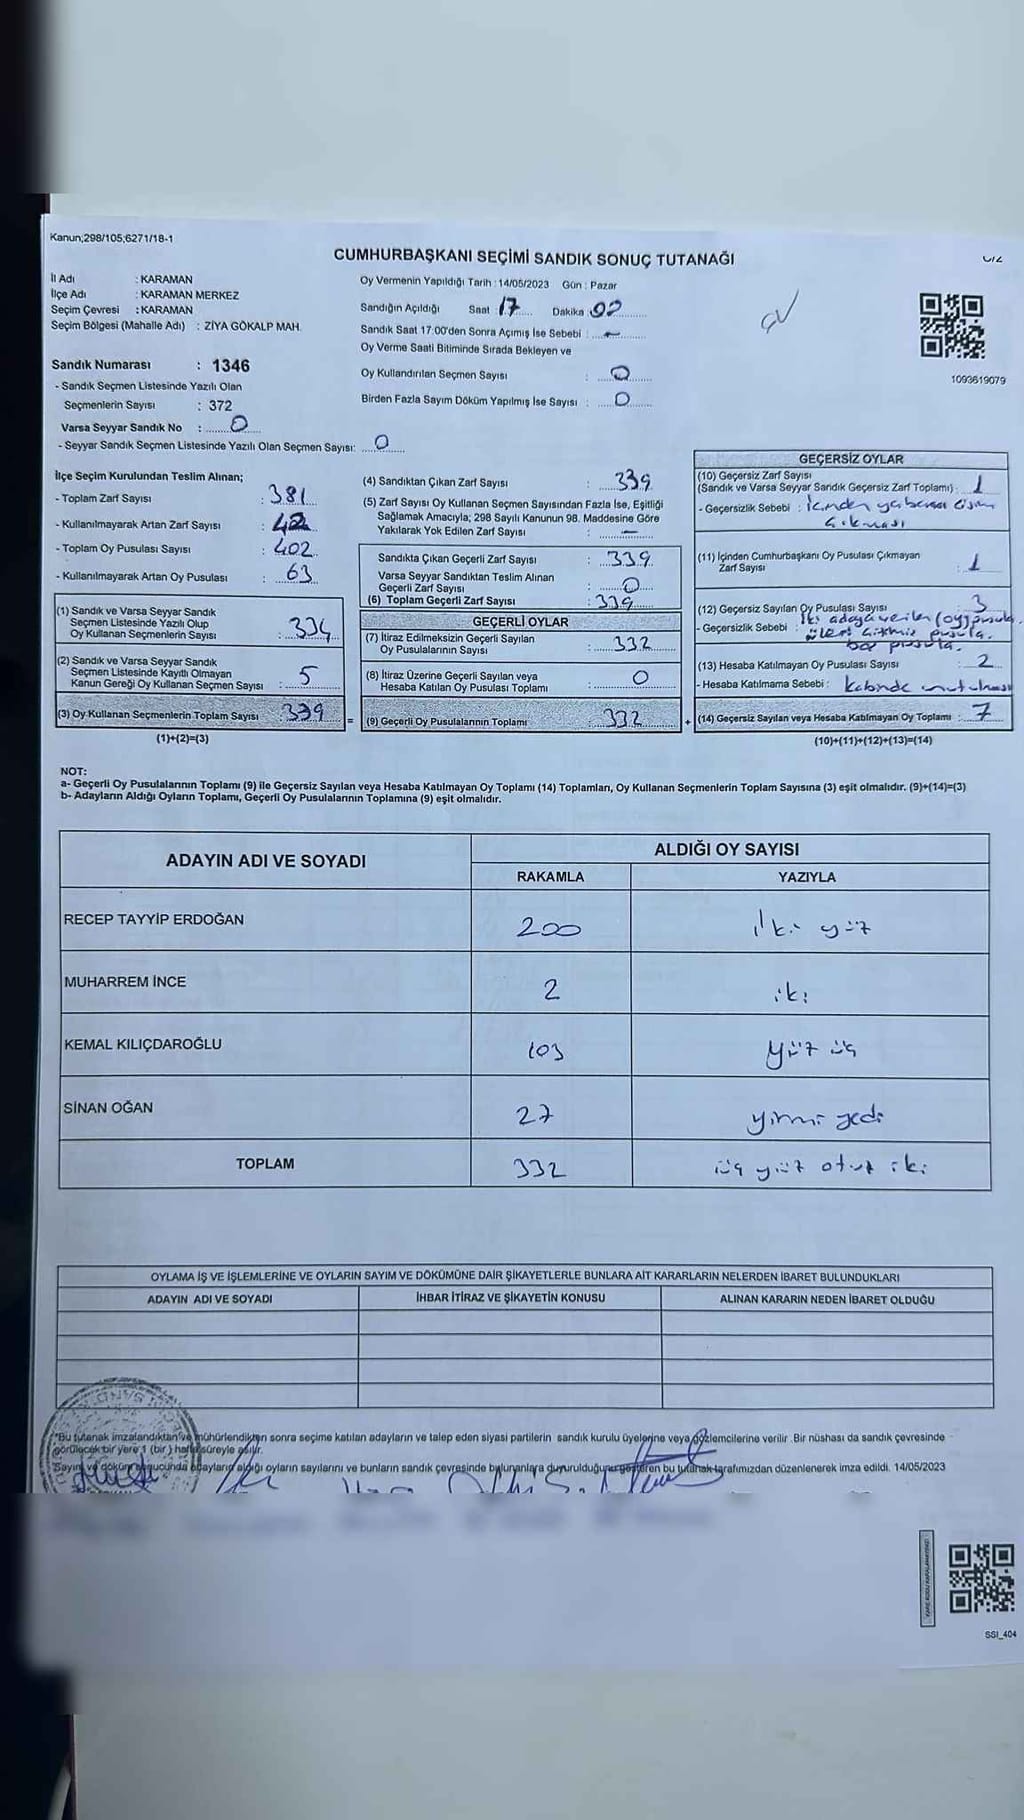 Kanun;298/105;6271/18-1
CUMHURBAŞKANI SEÇİMİ SANDIK SONUÇ TUTANAĞI
İl Adı : KARAMAN
İlçe Adı : KARAMAN MERKEZ
Seçim Çevresi : KARAMAN
Seçim Bölgesi (Mahalle Adı) : ZİYA GÖKALP MAH.
Oy Vermenin Yapıldığı Tarih : 14/05/2023 Gün : Pazar
Sandığın Açıldığı Saat 17 Dakika 02
Sandık Saat 17:00'den Sonra Açımış İse Sebebi : -
Oy Verme Saati Bitiminde Sırada Bekleyen ve
Oy Kullandırılan Seçmen Sayısı : 0
Birden Fazla Sayım Döküm Yapılmış İse Sayısı : 0
1093619079
Sandık Numarası : 1346
- Sandık Seçmen Listesinde Yazılı Olan
Seçmenlerin Sayısı : 372
Varsa Seyyar Sandık No : 0
- Seyyar Sandık Seçmen Listesinde Yazılı Olan Seçmen Sayısı: 0
İlçe Seçim Kurulundan Teslim Alınan;
- Toplam Zarf Sayısı : 381
- Kullanılmayarak Artan Zarf Sayısı : 42
- Toplam Oy Pusulası Sayısı : 402
- Kullanılmayarak Artan Oy Pusulası : 63
(1) Sandık ve Varsa Seyyar Sandık
Seçmen Listesinde Yazılı Olup
Oy Kullanan Seçmenlerin Sayısı : 334
(2) Sandık ve Varsa Seyyar Sandık
Seçmen Listesinde Kayıtlı Olmayan
Kanun Gereği Oy Kullanan Seçmen Sayısı : 5
(3) Oy Kullanan Seçmenlerin Toplam Sayısı 339 =
(1)+(2)=(3)
(4) Sandıktan Çıkan Zarf Sayısı : 339
(5) Zarf Sayısı Oy Kullanan Seçmen Sayısından Fazla İse, Eşitliği
Sağlamak Amacıyla; 298 Sayılı Kanunun 98. Maddesine Göre
Yakılarak Yok Edilen Zarf Sayısı : -
Sandıkta Çıkan Geçerli Zarf Sayısı : 339
Varsa Seyyar Sandıktan Teslim Alınan
Geçerli Zarf Sayısı : 0
(6) Toplam Geçerli Zarf Sayısı : 339
GEÇERLİ OYLAR
(7) İtiraz Edilmeksizin Geçerli Sayılan
Oy Pusulalarının Sayısı : 332
(8) İtiraz Üzerine Geçerli Sayılan veya
Hesaba Katılan Oy Pusulası Toplamı : 0
(9) Geçerli Oy Pusulalarının Toplamı : 332 +
GEÇERSİZ OYLAR
(10) Geçersiz Zarf Sayısı
(Sandık ve Varsa Seyyar Sandık Geçersiz Zarf Toplamı) : 1
- Geçersizlik Sebebi : İçinden yabancı cisim
çıkması
(11) İçinden Cumhurbaşkanı Oy Pusulası Çıkmayan
Zarf Sayısı : 1
(12) Geçersiz Sayılan Oy Pusulası Sayısı : 3
- Geçersizlik Sebebi : iki adaya verilen (oy) pusula,
pusula.
boş pusula.
(13) Hesaba Katılmayan Oy Pusulası Sayısı : 2
- Hesaba Katılmama Sebebi : kabinde unutulması
(14) Geçersiz Sayılan veya Hesaba Katılmayan Oy Toplamı : 7
(10)+(11)+(12)+(13)=(14)
NOT:
a- Geçerli Oy Pusulalarının Toplamı (9) ile Geçersiz Sayılan veya Hesaba Katılmayan Oy Toplamı (14) Toplamları, Oy Kullanan Seçmenlerin Toplam Sayısına (3) eşit olmalıdır. (9)+(14)=(3)
b- Adayların Aldığı Oyların Toplamı, Geçerli Oy Pusulalarının Toplamına (9) eşit olmalıdır.
ADAYIN ADI VE SOYADI ALDIĞI OY SAYISI
RAKAMLA YAZIYLA
RECEP TAYYİP ERDOĞAN 200 iki yüz
MUHARREM İNCE 2 iki
KEMAL KILIÇDAROĞLU 103 yüz üç
SİNAN OĞAN 27 yirmi yedi
TOPLAM 332 üç yüz otuz iki
OYLAMA İŞ VE İŞLEMLERİNE VE OYLARIN SAYIM VE DÖKÜMÜNE DAİR ŞİKAYETLERLE BUNLARA AİT KARARLARIN NELERDEN İBARET BULUNDUKLARI
ADAYIN ADI VE SOYADI İHBAR İTİRAZ VE ŞİKAYETİN KONUSU ALINAN KARARIN NEDEN İBARET OLDUĞU
*Bu tutanak imzalandıktan ve mühürlendikten sonra seçime katılan adayların ve talep eden siyasi partilerin sandık kurulu üyelerine veya gözlemcilerine verilir .Bir nüshası da sandık çevresinde
görülecek bir yere 1 (bir ) hafta süreyle asılır.
Sayım ve döküm sonucunda adayların aldığı oyların sayılarını ve bunların sandık çevresinde bulunanlara duyurulduğunu gösteren bu tutanak tarafımızdan düzenlenerek imza edildi. 14/05/2023
SSI_404